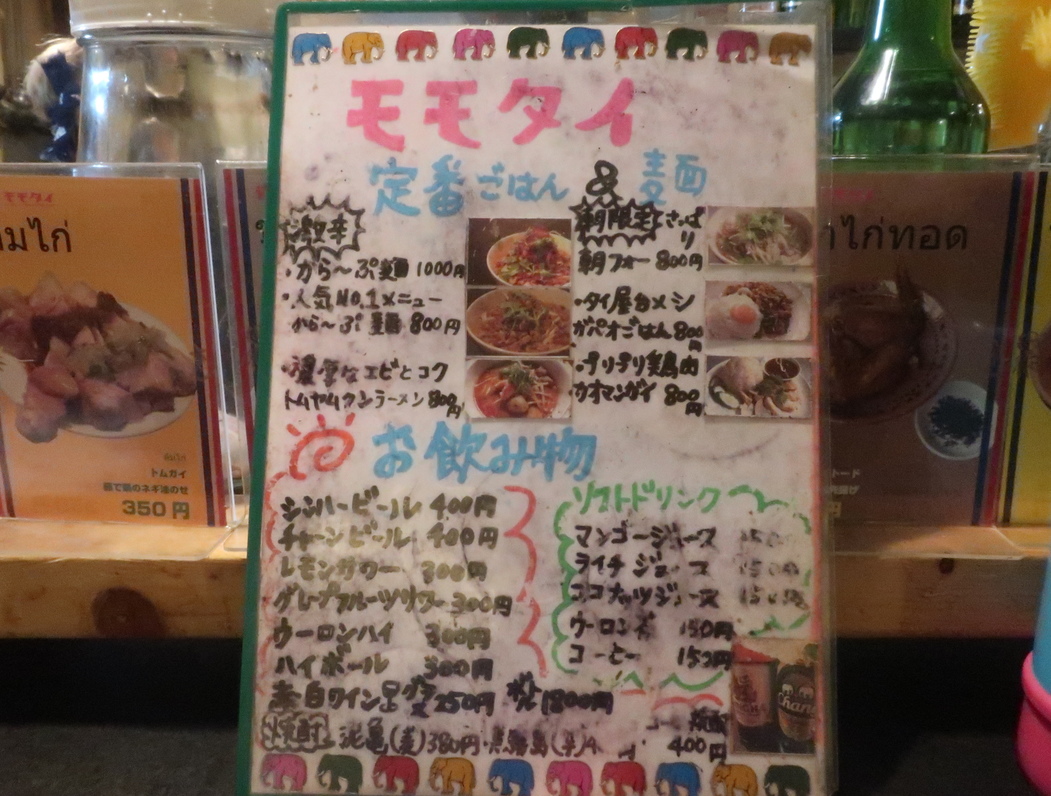 モモタイ
定番ごはん & 麺
激辛
・から〜ぷ麺 1000円
・人気No.1メニュー
から〜ぷ麺 800円
・濃厚なエビとコク
トムヤムクンラーメン 800円
朝限定 さっぱり
朝フォー 800円
・タイ屋台メシ
ガパオごはん 800円
・プリプリ鶏肉
カオマンガイ 800円
お飲み物
シンハービール 400円
チャーンビール 400円
レモンサワー 300円
グレープフルーツサワー 300円
ウーロンハイ 300円
ハイボール 300円
赤・白ワイン グラス 250円 ボトル 1800円
焼酎 (麦) 380円
400円
ソフトドリンク
マンゴージュース 150
ライチジュース 150
ココナッツジュース 150
ウーロン茶 150円
コーヒー 150円
Chang
モモタイ
มไก่
ต้มไก่
トムガイ
茹で鶏のネギ油のせ
350円
ไก่ทอด
トード
揚げ
円